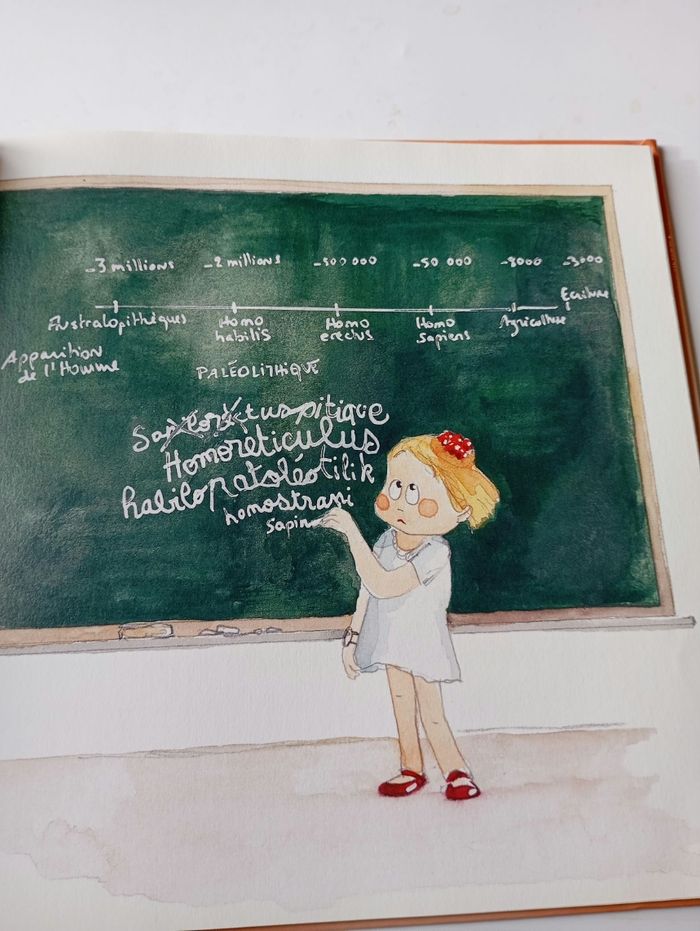 -3 millions -2 millions -500 000 -50 000 -8000 -3000
Australopithèques Homo habilis Homo erectus Homo Sapiens Agriculture Ecriture
Apparition
de l'Homme
PALÉOLITHIQUE
Homoreticulus
homostrapi
Sapin